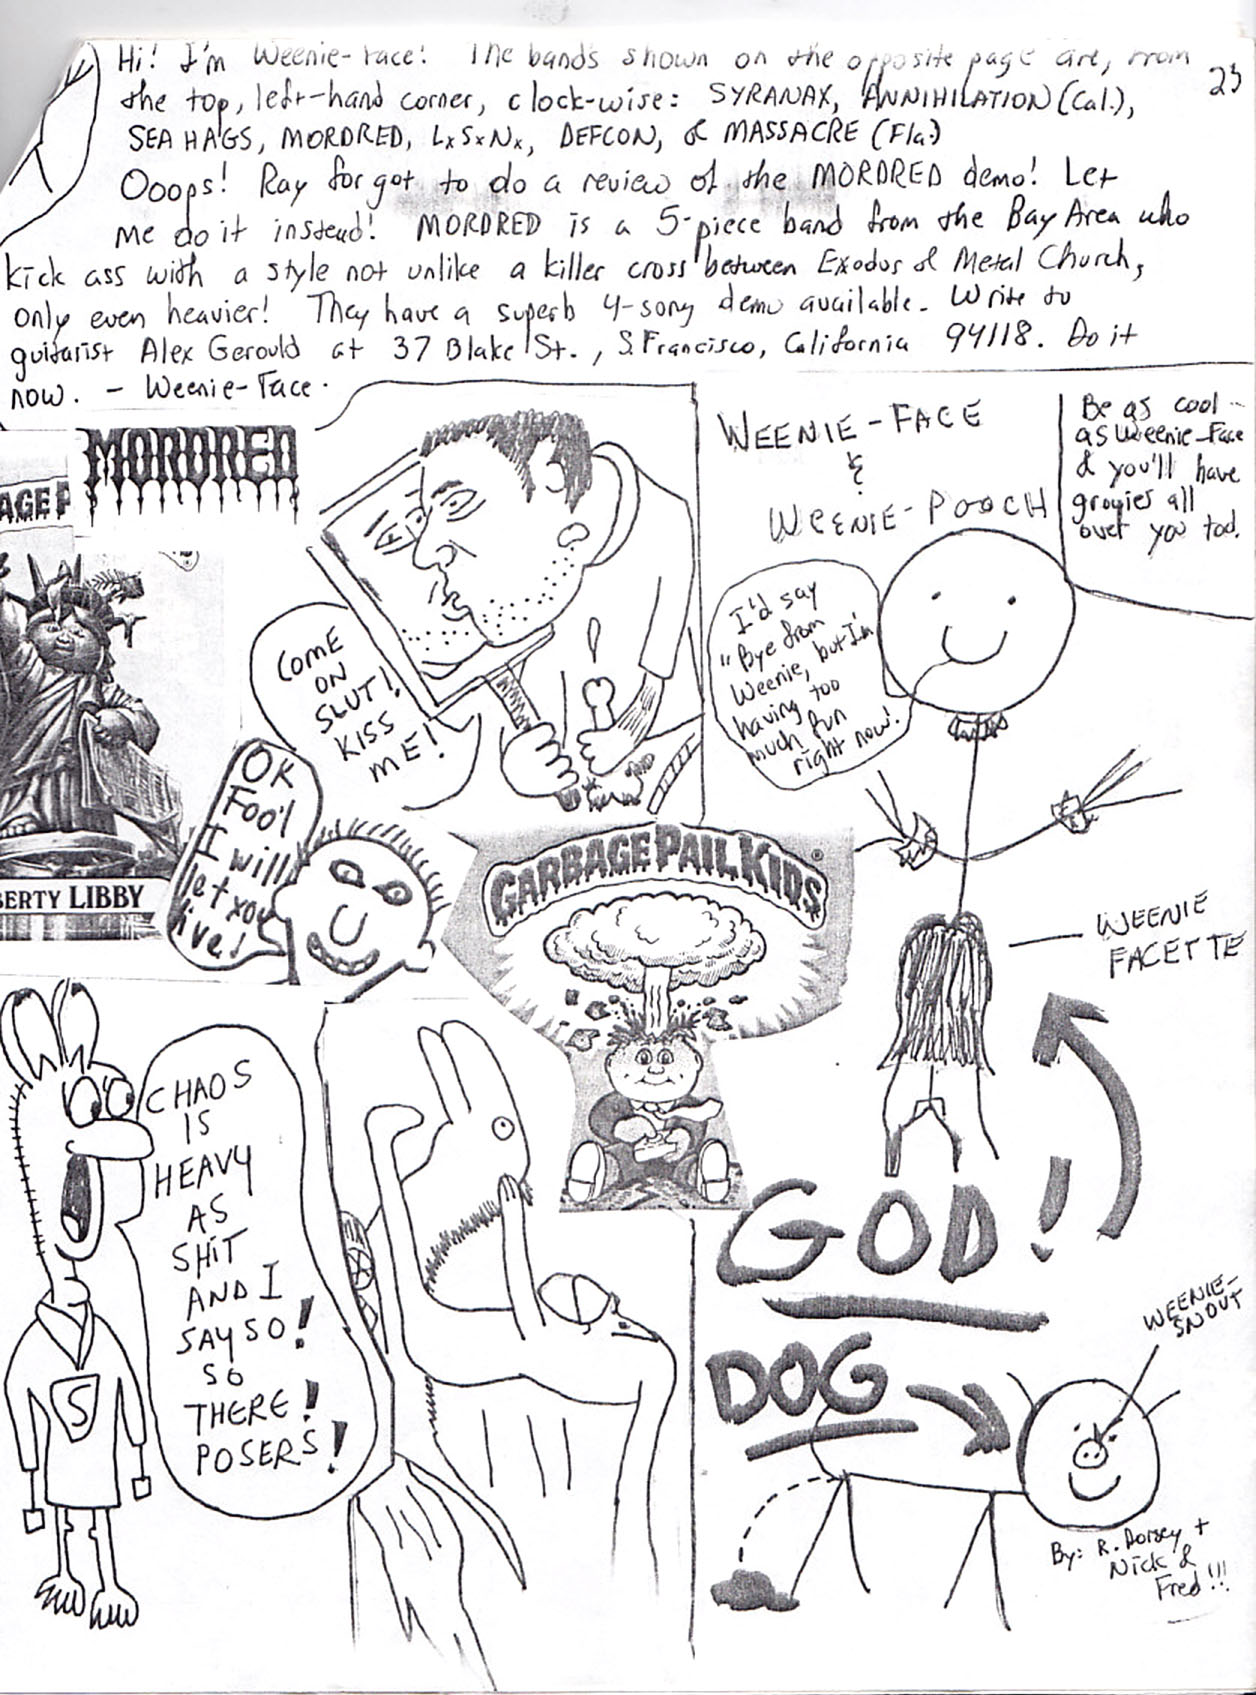 Hi! I'm Weenie-Face! The bands shown on the opposite page are, from
23
the top, left-hand corner, clock-wise: SYRANAX, ANNIHILATION (Cal.),
SEA HAGS, MORDRED, LxSxNx, DEFCON, & MASSACRE (Fla.)
Ooops! Ray forgot to do a review of the MORDRED demo! Let
me do it instead! MORDRED is a 5-piece band from the Bay Area who
kick ass with a style not unlike a killer cross between Exodus & Metal Church,
only even heavier! They have a superb 4-song demo available. Write to
guitarist Alex Gerould at 37 Blake St., S. Francisco, California 94118. Do it
now. - Weenie-Face.
MORDRED
AGE P
ERTY LIBBY
COME
ON
SLUT!
KISS
ME!
OK
Foo'l
I will
let you
live!
WEENIE-FACE
&
WEENIE-POOCH
Be as cool
as Weenie-Face
& you'll have
groupies all
over you too.
I'd say
"Bye from
Weenie, but I'm
having too
much fun
right now!
GARBAGE PAIL KIDS®
WEENIE
FACETTE
GOD!
DOG
WEENIE-
SNOUT
CHAOS
IS
HEAVY
AS
SHiT
AND I
SAY SO!
SO
THERE!
POSERS!
S
By: R. Dorsey +
Nick &
Fred!!!